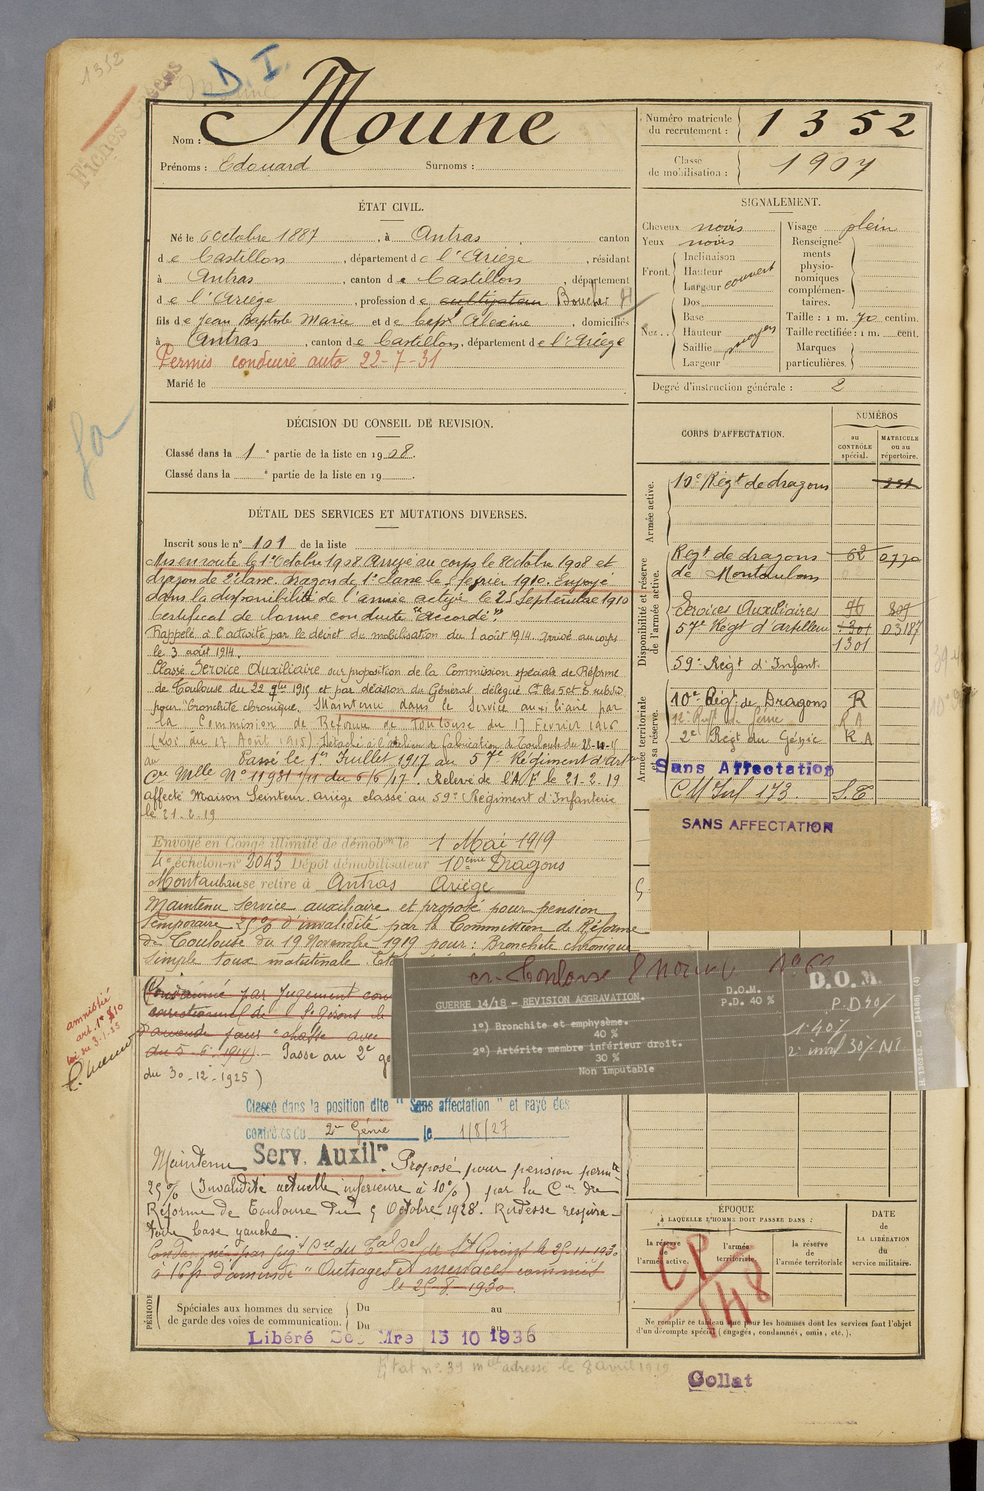 1352
D I.
Nom : Moune
Prénoms : Edouard Surnoms :
Numéro matricule du recrutement : 1352
Classe de mobilisation : 1907
ÉTAT CIVIL.
Né le 6 octobre 1887, à Antras, canton
de Castillon, département de l'Ariège, résidant
à Antras, canton de Castillon, département
de l'Ariège, profession de cultivateur Boucher
fils de Jean Baptiste Marie et de Cep^t Alexine, domiciliés
à Antras, canton de Castillon, département de l'Ariège
Permis conduire auto 22-7-31
Marié le
SIGNALEMENT.
Cheveux noirs
Yeux noirs
Front. Inclinaison
Hauteur
Largeur couvert
Nez.. Dos
Base
Hauteur moyen
Saillie
Largeur
Visage plein
Renseignements physionomiques complémentaires.
Taille : 1 m. 70 centim.
Taille rectifiée : 1 m. cent.
Marques particulières.
Degré d'instruction générale : 2
DÉCISION DU CONSEIL DE REVISION.
Classé dans la 1e partie de la liste en 1908.
Classé dans la e partie de la liste en 19
DÉTAIL DES SERVICES ET MUTATIONS DIVERSES.
Inscrit sous le n° 101 de la liste
Mis en route le 1er octobre 1908. Arrivé au corps le 8 octobre 1908 et
dragon de 2e classe. Dragon de 1e classe le 5 février 1910. Envoyé
dans la disponibilité de l'armée active le 25 septembre 1910
Certificat de bonne conduite "Accordé".
Rappelé à l'activité par le décret de mobilisation du 1 août 1914. Arrivé au corps
le 3 août 1914.
Classé Service Auxiliaire sur proposition de la Commission spéciale de Réforme
de Toulouse du 22 9bre 1915 et par décision du Général délégué
pour "bronchite chronique. Maintenu dans le Service auxiliaire par
la Commission de Réforme de Toulouse du 17 Février 1916
(Loi du 17 Août 1915) Détaché à l'atelier de fabrication de Toulouse du
au Passé le 1er Juillet 1917 au 57e Régiment d'Art
Cre Mlle N° 11931 du 6/6/17. Relevé de l'A F le 21.2.19
affecté Maison Seinteir. Ariège classé au 59e Régiment d'Infanterie
le 21.2.19
Envoyé en Congé illimité de démobon le 1 Mai 1919
4e échelon-n° 2043 Dépôt démobilisateur 10ème Dragons
Montauban se retire à Antras Ariège
Maintenu Service auxiliaire et proposé pour pension
temporaire 25% d'invalidité par la Commission de Réforme
de Toulouse du 19 Novembre 1919 pour : Bronchite chronique
simple toux matutinale.
Condamné par Jugement
correctionnel de St Girons le
d'amende pour "chasse avec
du 5-6-1914).- Passé au 2e
du 30-12-1925)
amnistié
art. 1er
loi du 3-1-25
Classé dans la position dite "Sans affectation" et rayé des
contrôles du 2e Génie le 1/8/27
Maintenu Serv. Auxilre. Proposé pour pension permte
25% (Invalidité actuelle inférieure à 10%) par la Con de
Réforme de Toulouse du 5 Octobre 1928. Rudesse respira-
toire base gauche.
Condamné par jugt du de St Girons le 25-11-1930
à 16f d'amende "Outrages et menaces commis
le 25-8-1930.
CORPS D'AFFECTATION.
NUMÉROS
au CONTRÔLE spécial.
MATRICULE ou au répertoire.
Armée active.
10e Régt de dragons
Disponibilité et réserve de l'armée active.
Régt de dragons 62
de Montauban
Services Auxiliaires 96
57e Régt d'artillerie 1301 D3187
1301
59e Régt d'Infant.
Armée territoriale et sa réserve.
10e Régt de Dragons R
2e Régt du Génie R.A
Sans Affectation
SANS AFFECTATION
Toulouse
GUERRE 14/18 - REVISION AGGRAVATION.
1°) Bronchite et emphysème.
40 %
2°) Artérite membre inférieur droit.
30 %
Non imputable
D.O.M.
P.D. 40 %
D.O.M.
P.D 40%
1° 40%
2° inval 30% NI
ÉPOQUE
À LAQUELLE L'HOMME DOIT PASSER DANS :
la réserve de l'armée active.
l'armée territoriale.
la réserve de l'armée territoriale
DATE de LA LIBÉRATION du service militaire.
CP
148
Ne remplir ce tableau que pour les hommes dont les services font l'objet
d'un décompte spécial (engagés, condamnés, omis, etc.).
PÉRIODES
Spéciales aux hommes du service
de garde des voies de communication.
Du au
Du au
Libéré Mre 15 10 1936
Etat n° 39 adressé le 8 avril 1919
Collat